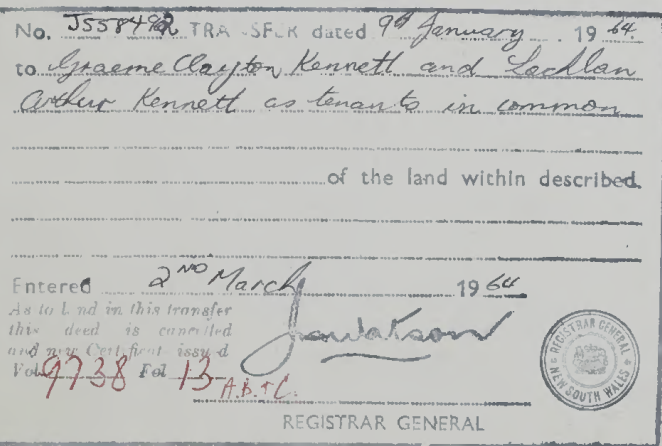 No. J558492 TRA SFER dated 9th January 1964
to Graeme Clayton Kennett and Lachlan
Arthur Kennett as tenants in common
of the land within described.
Entered 2ND March 1964
As to L nd in this transfer
this deed is cancelled
and new Certificat issu d
Vol 9738 Fol 13 A.B.&C.
REGISTRAR GENERAL
REGISTRAR GENERAL
NEW SOUTH WALES